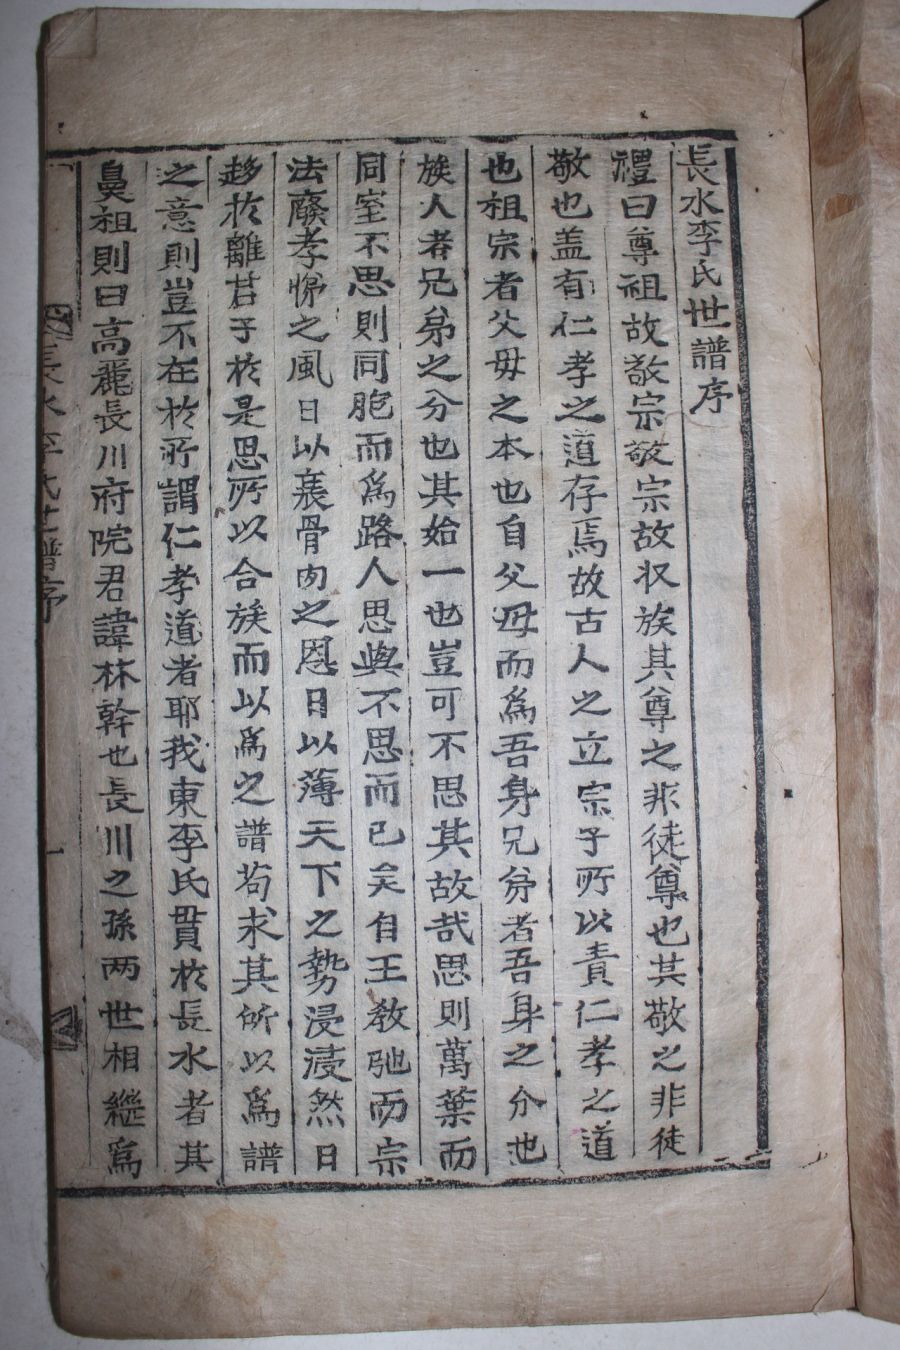 長水李氏世譜序
禮曰尊祖故敬宗敬宗故収族其尊之非徒尊也其敬之非徒
敬也盖有仁孝之道存焉故古人之立宗子所以責仁孝之道
也祖宗者父母之本也自父母而爲吾身兄弟者吾身之分也
族人者兄弟之分也其始一也豈可不思其故哉思則萬葉而
同室不思則同胞而爲路人思與不思而已矣自王教弛而宗
法廢孝悌之風日以衰骨肉之恩日以薄天下之勢浸浸然日
趍於離君子於是思所以合族而以爲之譜苟求其所以爲譜
之意則豈不在於所謂仁孝道者耶我東李氏貫於長水者其
鼻祖則曰高麗長川府院君諱林幹也長川之孫两世相繼爲
長水李氏世譜序
一